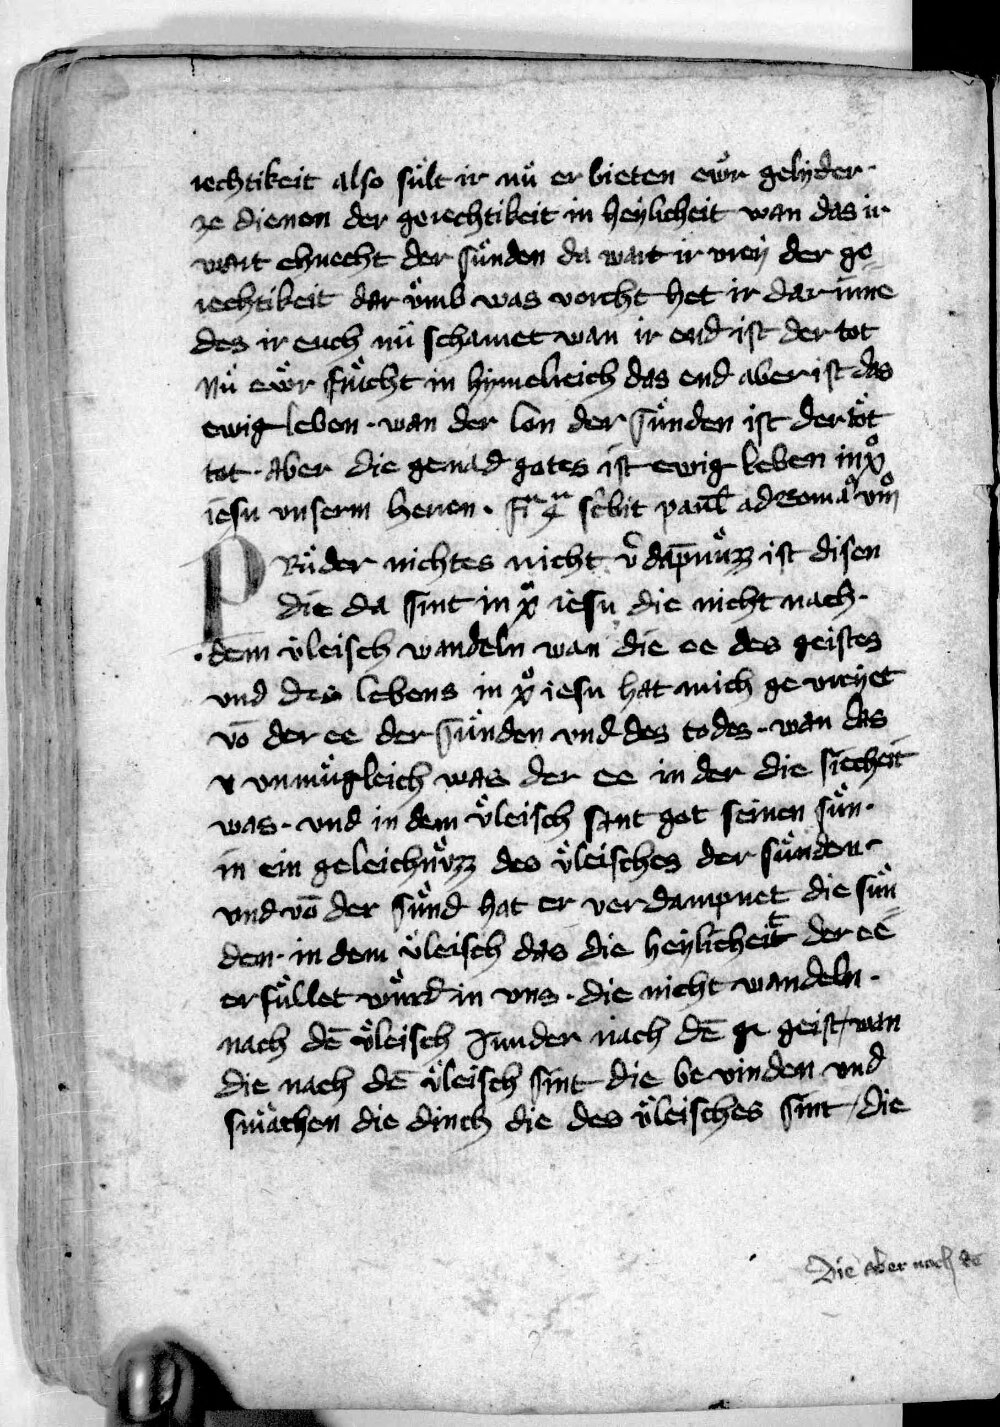 rechtikeit also suͤlt ir nuͤ er bieten ewͤr gelyder·
ze dienen der gerechtikeit in heylicheit wan das ir·
wart chnecht der suͤnden da wart ir vrey der ge
rechtikeit dar vͤmb was vorcht het ir dar inne
des ir euch nuͤ schamet wan ir end ist der tot
Nuͤ ewͤr fruͤcht in hymelreich das end aber ist das
ewig leben· wan der lon der suͤnden ist der toͤt
tot· aber die genad gotes ist ewig leben in xp̊
iesu vnserm herren· scͥbit paul ad Romaͣ viij
PRuͤder nichtes nicht v̓dāpnuͤzz ist disen
die da sint in xp̊ iesu die nicht nach·
·dem vͤleisch wandeln wan die ee des geistes
vnd des lebens in xp̊ iesu hat mich ge vreyet
vō der ee der suͤnden vnd des todes· wan das
v vnmuͤgleich was der ee in der die siecheit
was· vnd in dem vͤleisch sant got seinen suͤn·
in ein geleichnuͤzz des vͤleisches der suͤnden·
vnd vō der suͤnd hat er verdampnet die suͤn
den· in dem vͤleisch das die heylicheit der ee
erfuͤllet wuͤrd in vns· die nicht wandeln·
nach dē vͤleisch Sunder nach dē gr geist/ wan
die nach dē vͤleisch sint die bevinden vnd
smaͤchen die dinch die des vͤleisches sint/ die
Die aber nach dē